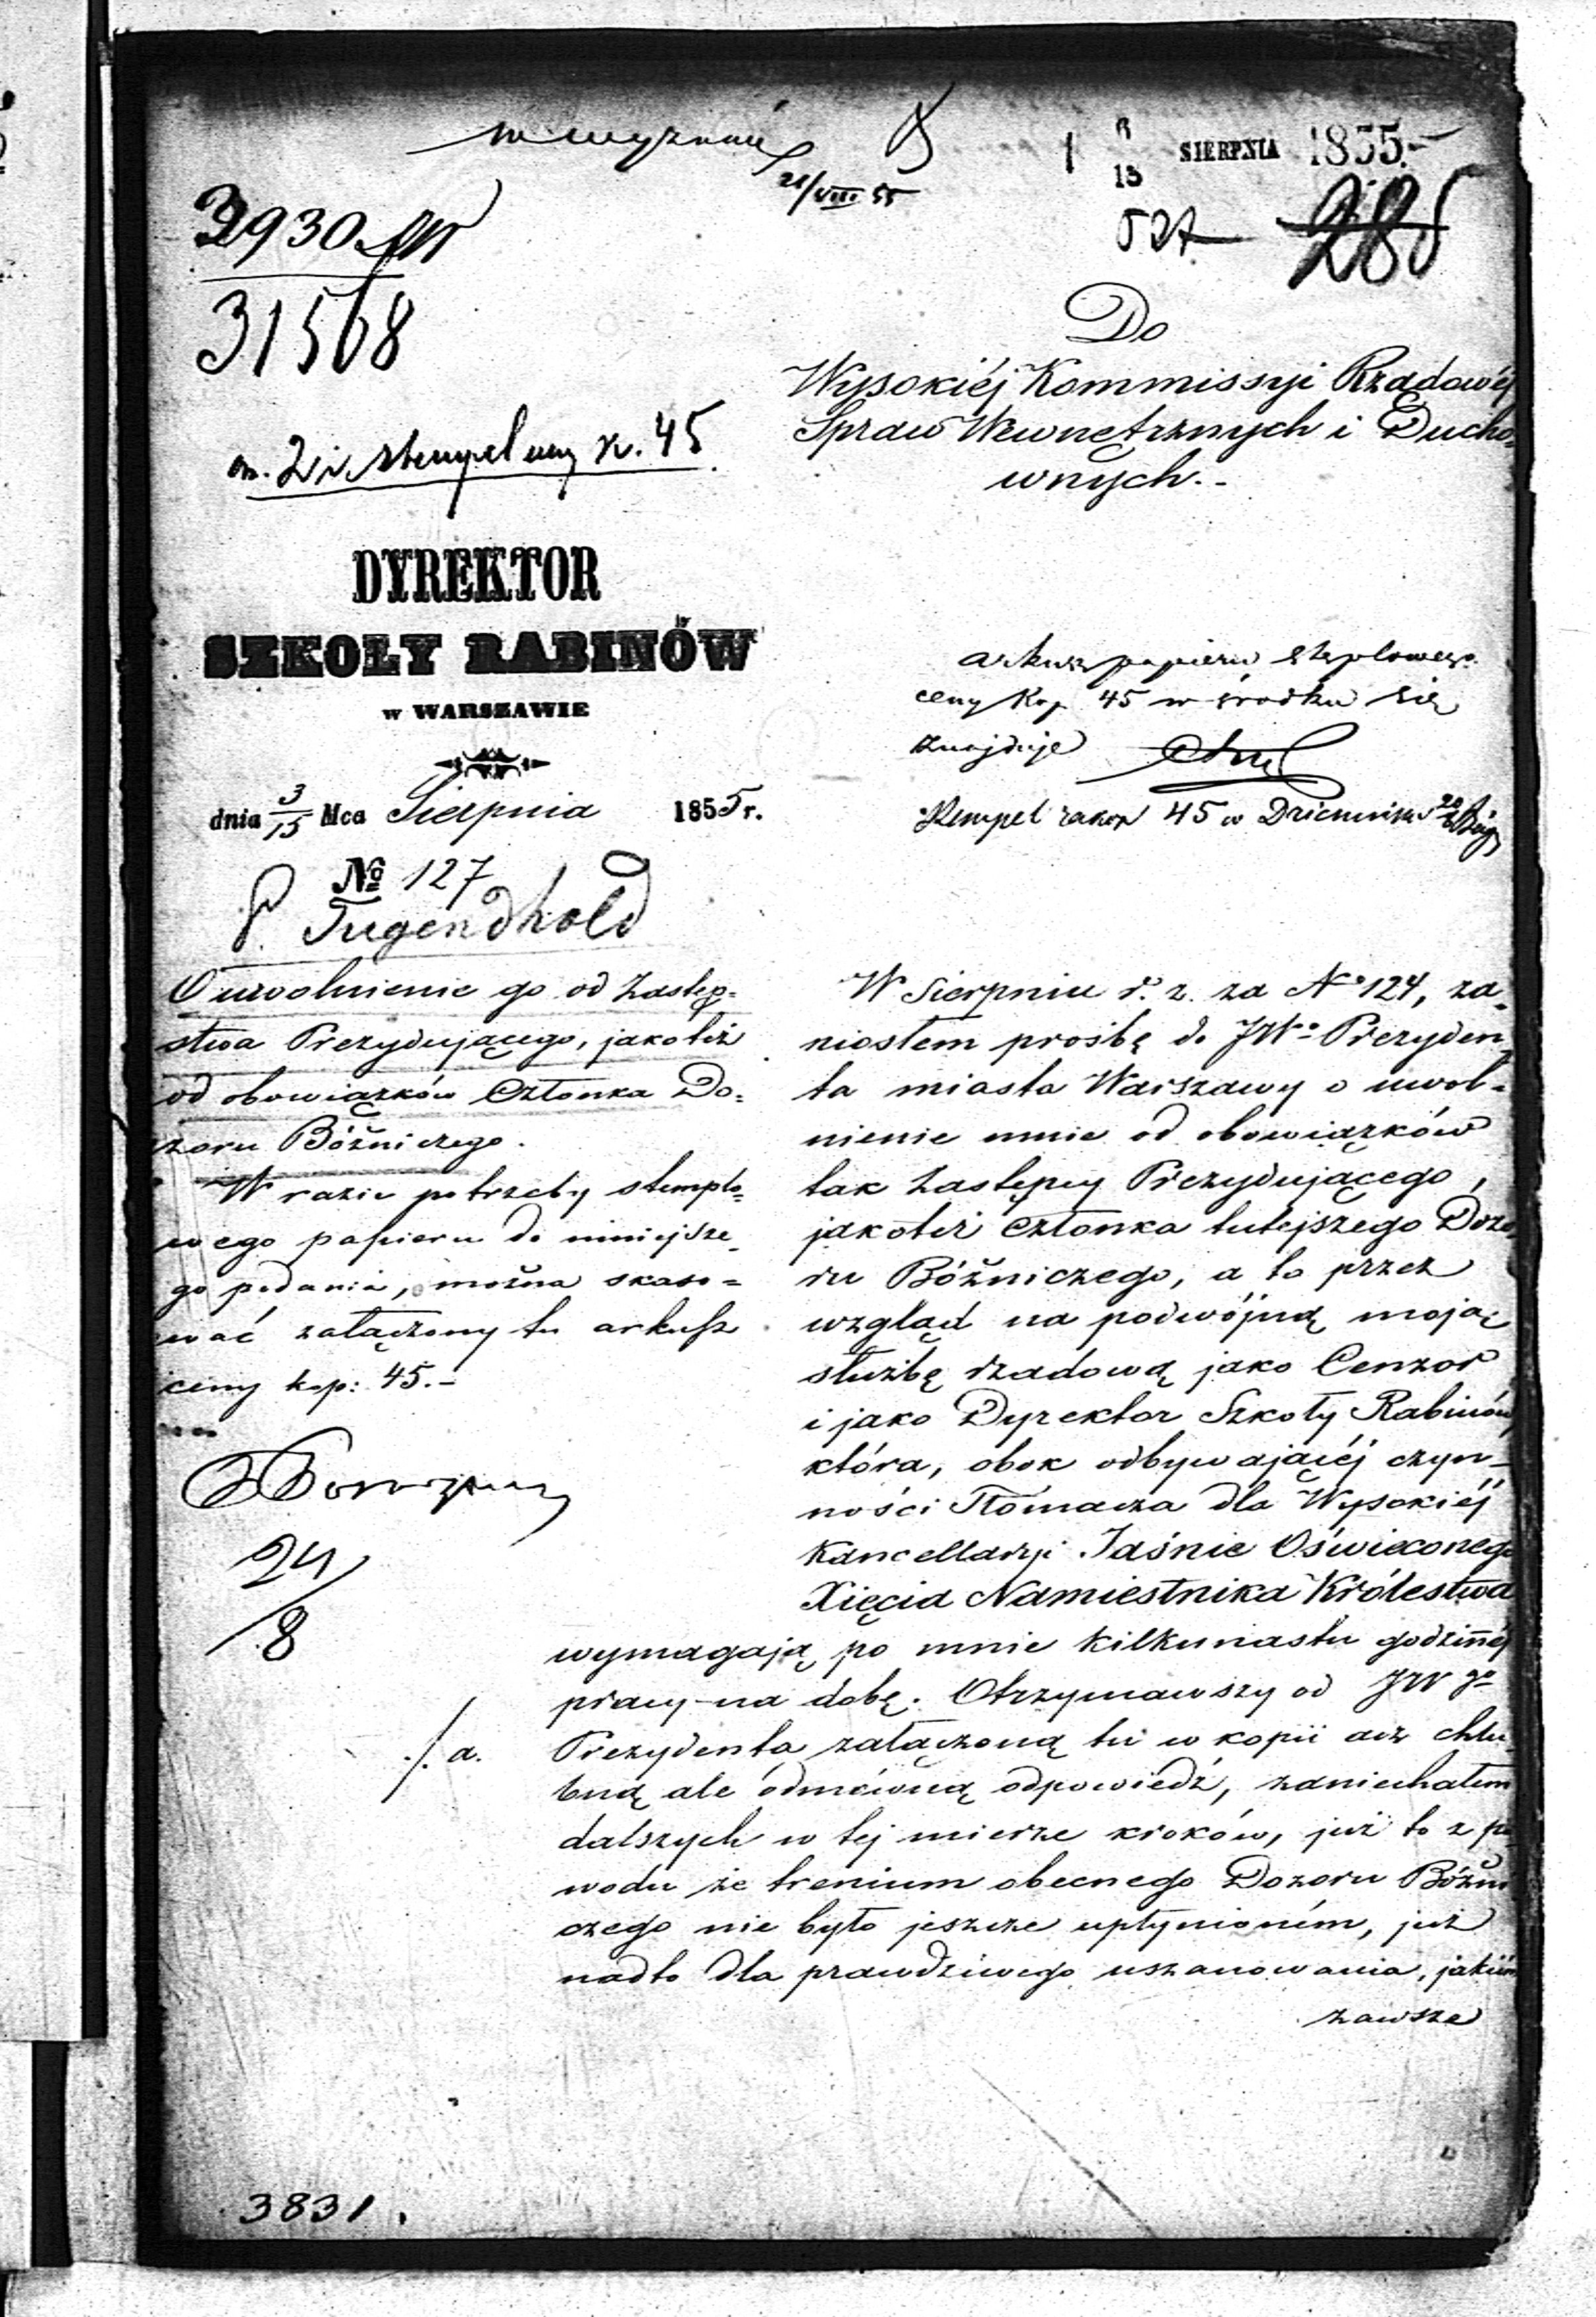 SIERPNIA 1855.-
13
21/VIII 55
2930
31568
527
285
Do
Wysokiéj Kommissyi Rządowéj
Spraw Wewnętrznych i Ducho-
wnych.-
stempel 45
DYREKTOR
SZKOŁY RABINÓW
w WARSZAWIE
dnia 3/15 Mca Sierpnia 1855 r.
№ 127
P. Tugendhold
arkusz papieru stęplowego
ceny kop 45 w środku się
znajduje
Stempel 45 w
O uwolnienie go od Zastęp=
stwa Prezydującego, jakoteż
od obowiązków Członka Do=
zoru Bóżniczego.
W razie potrzeby stemplo=
wego papieru do niniejsze-
go podania, można skaso=
wać załączony tu arkusz
ceny kop: 45.-
24/8
W Sierpniu r. z. za No 124, za-
niosłem prośbę do JWo Prezyden-
ta miasta Warszawy o uwol-
nienie mnie od obowiązków
tak Zastępcy Prezydującego,
jakoteż Członka tutejszego Dozo
ru Bóżniczego, a to przez
wzgląd na podwójną moją
służbę rządową jako Cenzor
i jako Dyrektor Szkoły Rabinów,
która, obok odbywającéj czyn-
ności Tłómacza dla Wysokiéj
Kancellaryi Jaśnie Oświeconego
Xięcia Namiestnika Królestwa
wymagają po mnie kilkunastu godzinnéj
pracy na dobę. Otrzymawszy od JWgo
./. a. Prezydenta załączoną tu w kopii acz chlu-
bną ale odmówną odpowiedź, zaniechałem
dalszych w tej mierze kroków, już to z po
wodu że trenium obecnego Dozoru Bóżni
czego nie było jeszcze upłynioném, już
nadto dla prawdziwego uszanowania, jakiém
zawsze
3831.